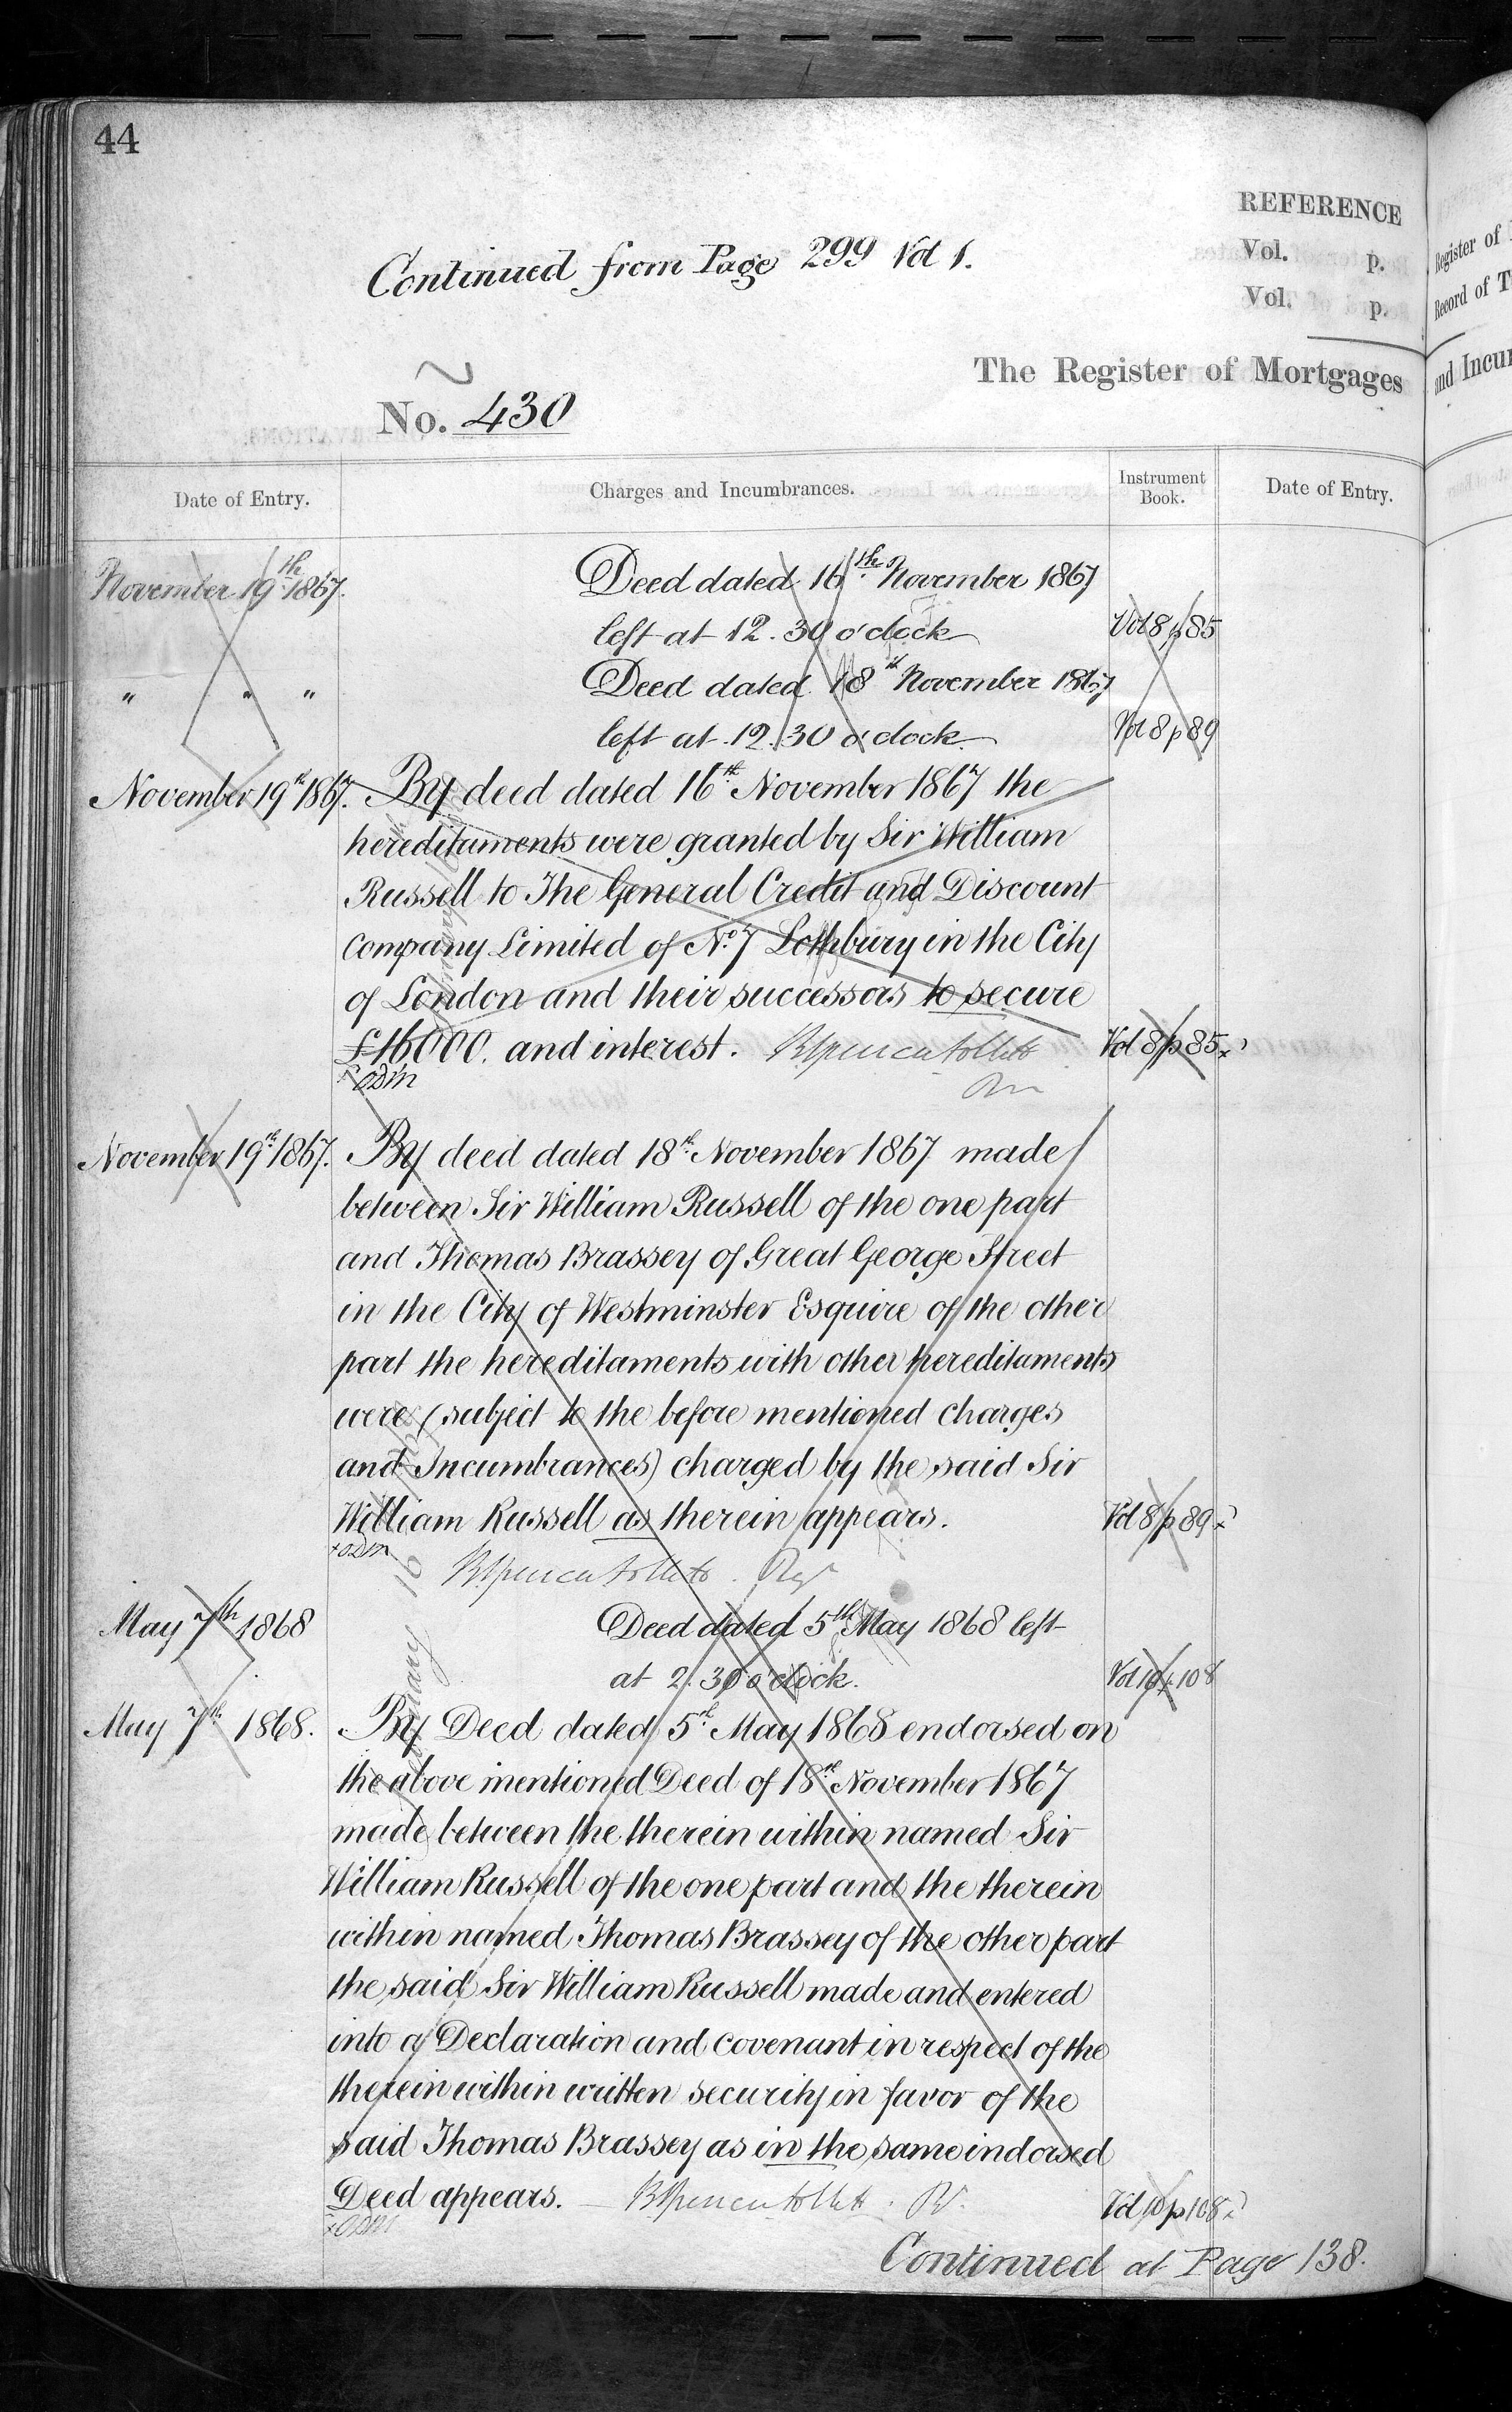 44
REFERENCE
Vol. p.
Vol. p.
Continued from Page 299 Vol 1.
The Register of Mortgages
No. 430
Date of Entry. Charges and Incumbrances. Instrument Book. Date of Entry.
November 19th 1867. Deed dated 16th November 1867
left at 12.30 o'clock Vol 8 p 85
" " " Deed dated 18th November 1867
left at 12.30 o'clock Vol 8 p 89
November 19th 1867. By deed dated 16th November 1867 the
hereditaments were granted by Sir William
Russell to The General Credit and Discount
Company Limited of No. 7 Lothbury in the City
of London and their successors to secure
£16000. and interest. Vol 8 p 85
November 19th 1867. By deed dated 18th November 1867 made
between Sir William Russell of the one part
and Thomas Brassey of Great George Street
in the City of Westminster Esquire of the other
part the hereditaments with other hereditaments
were (subject to the before mentioned charges
and Incumbrances) charged by the said Sir
William Russell as therein appears. Vol 8 p 89
May 7th 1868 Deed dated 5th May 1868 left
at 2.30 o'clock. Vol 10 p 108
May 7th 1868. By Deed dated 5th May 1868 endorsed on
the above mentioned Deed of 18th November 1867
made between the therein within named Sir
William Russell of the one part and the therein
within named Thomas Brassey of the other part
the said Sir William Russell made and entered
into a Declaration and covenant in respect of the
therein within written security in favor of the
said Thomas Brassey as in the same indorsed
Deed appears. Vol 10 p 108
Continued at Page 138.
Register of
Record of
and Incum